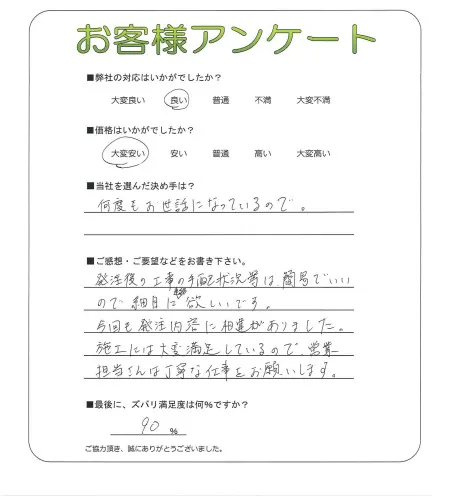 お客様アンケート
■弊社の対応はいかがでしたか？
大変良い 良い 普通 不満 大変不満
■価格はいかがでしたか？
大変安い 安い 普通 高い 大変高い
■当社を選んだ決め手は？
何度もお世話になっているので。
■ご感想・ご要望などをお書き下さい。
発注後の工事の手配状況等は、簡易でいい
ので細目に欲しいです。
今回も発注内容に相違がありました。
施工には大変満足しているので、営業
担当さんは丁寧な仕事をお願いします。
■最後に、ズバリ満足度は何％ですか？
90 ％
ご協力頂き、誠にありがとうございました。